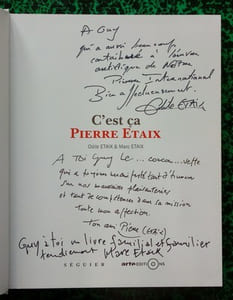 A Guy
qui a aussi beaucoup
contribué à l'univers
artistique de Notre
Pierre International
Bien affectueusement.
Odile ETAIX
C'est ça
PIERRE ETAIX
Odile ETAIX & Marc ETAIX
A TOI Guy Le
qui a toujours manifesté tant d'humour
sur nos mauvaises plaisanteries
et tant de compétences dans sa mission
toute mon affection.
Ton ami Pierre (ETAIX)
Guy à toi un livre familial et familier
tendrement Marc Etaix
SEGUIER arte EDITIONS